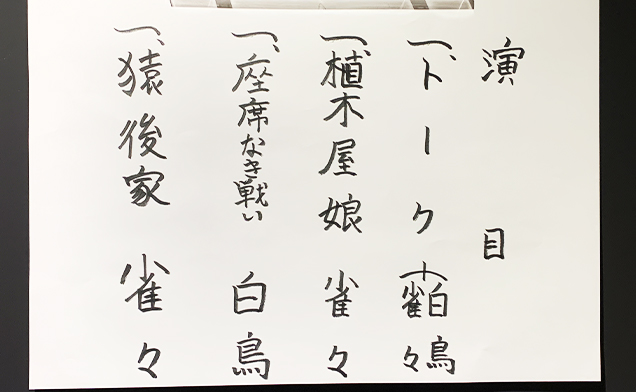 演目
一、トーク 白鳥 雀々
一、植木屋娘 雀々
一、座席なき戦い 白鳥
一、猿後家 雀々